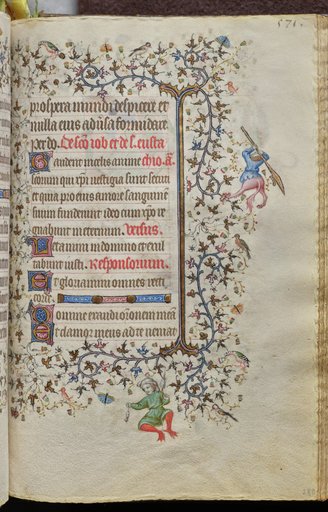 571.
prospera mundi despicere et
nulla eius aduersa formidare
per do. De scō iob et de s. eusta
Gaudent in celis anime chio. a͠.
sctorum qui xp̄i vestigia sunt secuti
et quia pro eius amore sanguinē
suum fuderunt ideo cum xpō re
gnabunt in eternum. Versus.
Letamini in domino et exul
tabunt iusti. Responsorium.
Et gloriamini omnes recti
corde.
Domine exaudi orōnem meā
Et clamor meus ad te veniat